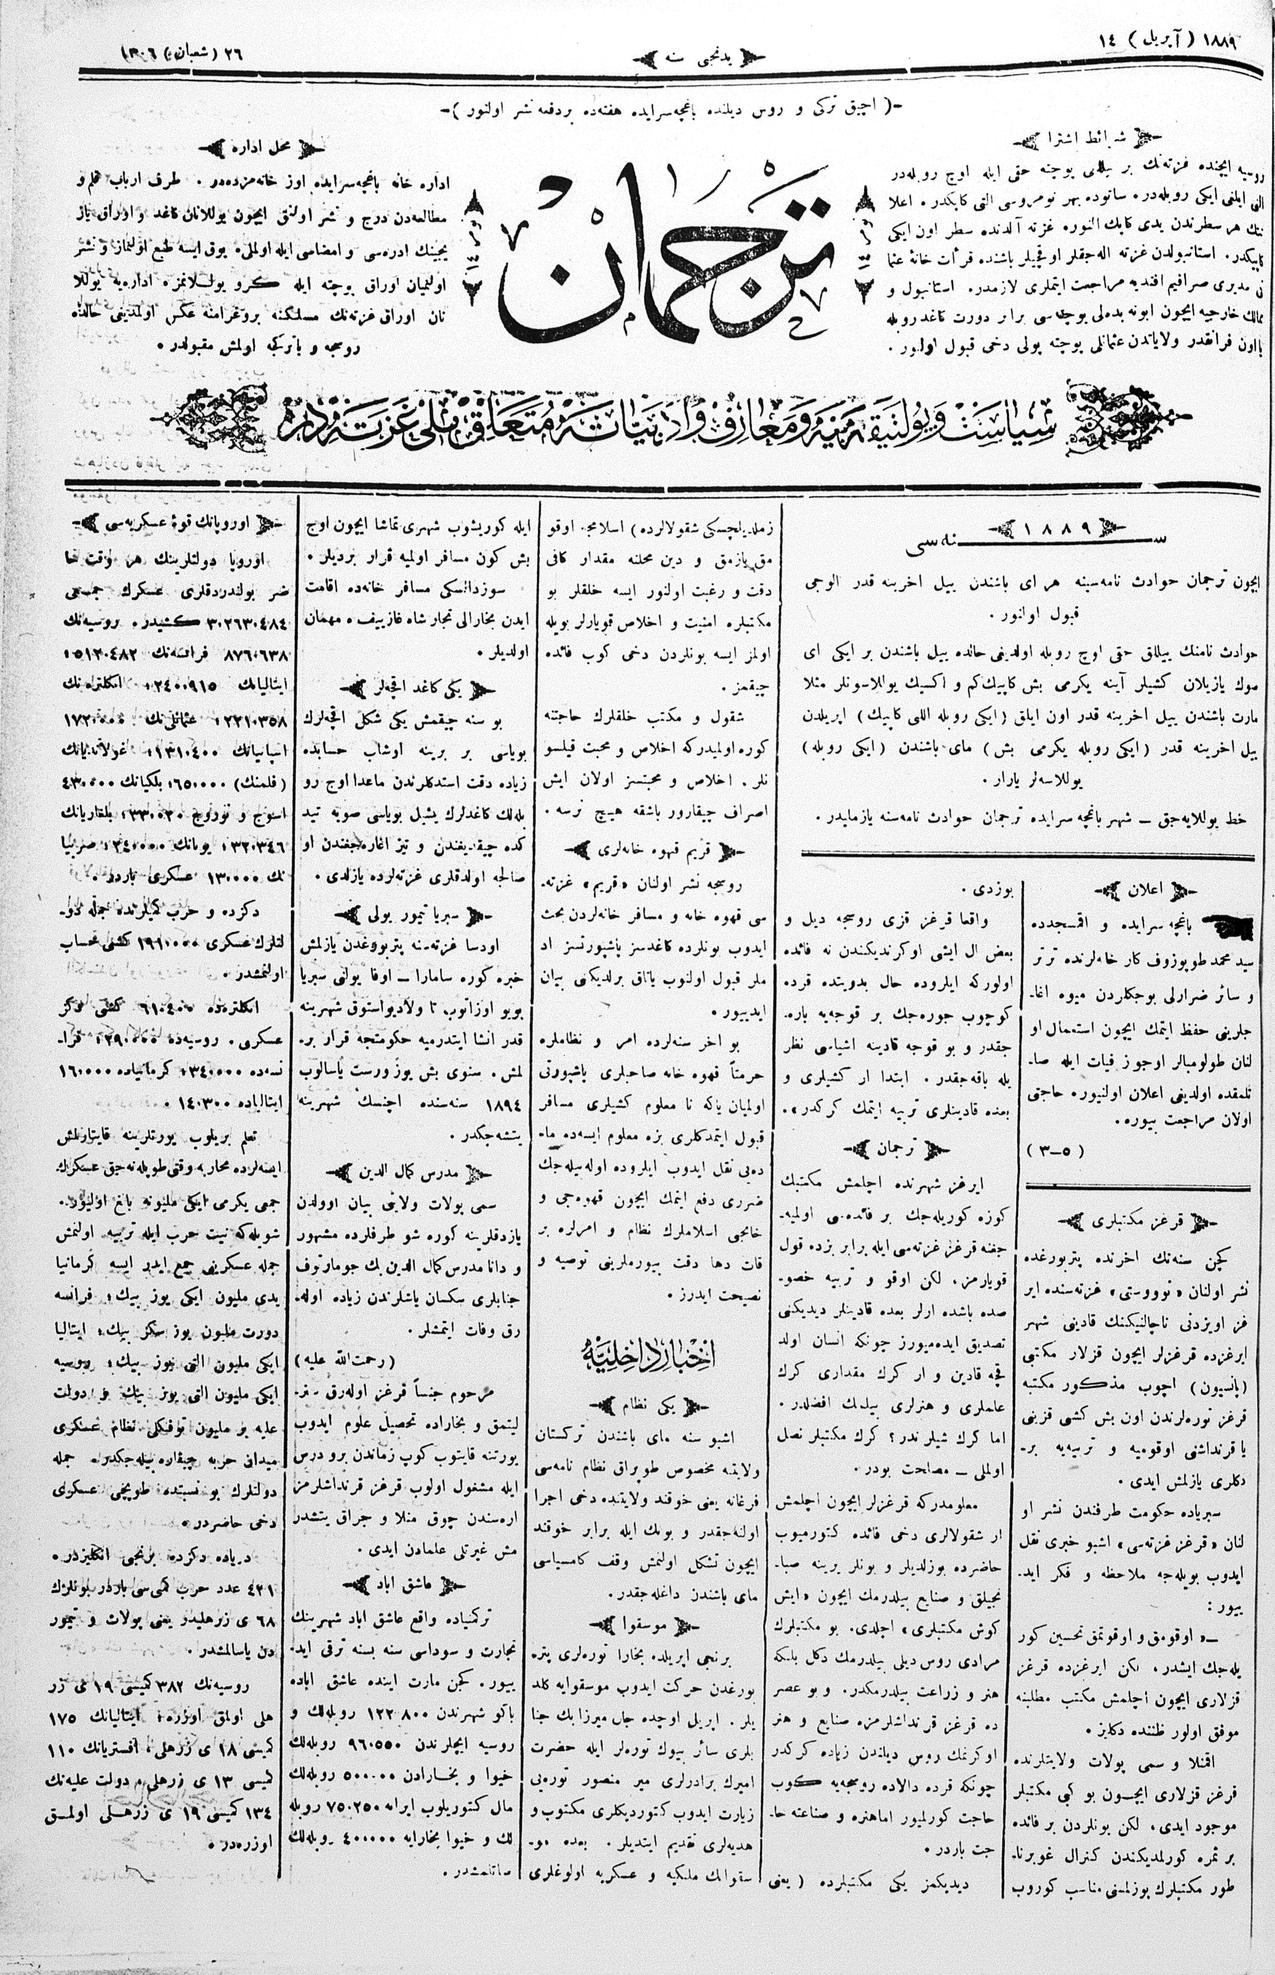 ١٨٨٩ ( آپريل ) ١٤
يدنجى سنه
٢٦ ( شعبان ) ١٣٠٦
-( آچيق تركى و روس ديلنده باغچه سرايده هفته‌ده بر دفعه نشر اولنور )-
شرائط اشترا
روسيه ايچنده غزته‌نك بر ييللق پوچته حقى ايله اوچ روبله‌در
التى ايلغى ايكى روبله‌در. ساتوده بهر نومروسى التى كاپكدر. اعلا
ننك هر سطرندن يدى كاپك النور. غزته آلدنده سطر اون ايكى
كاپيكدر. استانبولدن غزته اله‌جقلر اوقجيلر باشنده قرأت خانهٔ عثما
نى مديرى صرافيم افنديه مراجعت ايتملرى لازمدر. استانبول و
ممالك خارجيه ايچون ابونه بدلى پوچه سى برابر دورت كاغد روبله
يااون فرانقدر ولاياتدن عثمانلى پوچته پولى دخى قبول اولنور.
ترجمان
محل اداره
اداره خانه باغچه سرايده اوز خانه‌مزده‌در. طرف ارباب قلم و
مطالعه‌دن درج و نشر اولنق ايچون يوللانان كاغد و اوراق ياز
يجينك ادره‌سى و امضاسى ايله اولملى. يوق ايسه طبع اولنماز و نشر
اولنميان اوراق پوچته ايله كرو يوللانمز. اداره‌يه يوللا
نان اوراق غزته‌نك مسلكنه پروغرامنه عكس اولمديغى حالده
روسجه و ياتركجه اولمش مقبولدر.
سياست و پوليتيقه مدنيه و معارف و ادبياته متعلق ملى غزته‌در
١٨٨٩
سنه‌سى
ايچون ترجمان حوادث نامه‌سينه هر اى باشندن ييل اخرينه قدر الوجى
قبول اولنور.
حوادث نامنك ييللق حقى اوچ روبله اولديغى حالده ييل باشندن بر ايكى اى
صوك يازيلان كشيلر آينه يكرمى بش كاپيك كم و اكسيك يوللاسونلر مثلا
مارت باشندن ييل اخرينه قدر اون ايلق (ايكى روبله اللى كاپيك) اپريلدن
ييل اخرينه قدر (ايكى روبله يكرمى بش) ماى باشندن (ايكى روبله)
يوللاسه‌لر يارار.
خط يوللايه‌جق ــ شهر باغچه سرايده ترجمان حوادث نامه‌سنه يازمايدر.
اعلان
باغچه سرايده و اقمسجدده
سيد محمد طوپوزوف كار خانه‌لرنده ترتر
و سائر ضرارلى بوجكلردن ميوه اغا-
جلرينى حفظ ايتمك ايچون استعمال او
لنان طولومبالر اوجوز فيات ايله صا-
تلمقده اولديغى اعلان اولنيور. حاجتى
اولان مراجعت بيوره.
(٥-٣)
قرغز مكتبلرى
كچن سنه‌نك اخرنده پتربورغده
نشر اولنان «نووستى» غزته‌سنده اير
غز اويزدنى ناچالنيكنك قادينى شهر
ايرغزده قرغزلر ايچون قزلار مكتبى
(پانسيون) اچوب مذكور مكتبه
قرغز توره‌لرندن اون بش كشى قزينى
يا قرنداشنى اوقوميه و تربيه‌يه بر-
دكلرى يازلمش ايدى.
سيرياده حكومت طرفندن نشر او
لنان «قرغز غزته‌سى» اشبو خبرى نقل
ايدوب بويله‌جه ملاحظه و فكر ايد-
ييور:
ــ «اوقومق و اوقوتمق تحسين كور
يله‌جك ايشدر. لكن ايرغزده قرغز
قزلارى ايچون اچلمش مكتب مطلبنه
موفق اولور ظننده دكلز.
اقملا و سمى پولات ولايتلرنده
قرغز قزلارى ايچون بو كبى مكتبلر
موجود ايدى. لكن بونلردن بر فائده
بر ثمره كورلمديكندن كنرال غوبرنا-
طور مكتبلرك بوزلمسنى مناسب كوروب
بوزدى.
واقعا قرغز قزى روسجه ديل و
بعض ال ايشى اوكرنديكندن نه فائده
اولوركه ايلروده حال بدويتده قرده
كوچوب جوره‌جك بر قوجه‌يه باره-
جقدر و بو قوجه قادينه اشياسى نظر
يله باقه‌جقدر. ابتدا ار كشيلرى و
بعده قادينلرى تربيه ايتمك كركدر».
ترجمان
ايرغز شهرنده اچلمش مكتبك
كوزه كوريله‌جك بر فائده‌سى اولميه-
جغنه قرغز غزته‌سى ايله برابر بزده قول
قويارمز. لكن اوقو و تربيه خصو-
صده باشده ارلر بعده قادينلر ديديكنى
تصديق ايده‌ميورز چونكه انسان اولد
قجه قادين و ار كرك مقدارى كرك
علملرى و هنرلرى بيلمك افضلدر.
اما كرك شيلر ندر؟ كرك مكتبلر نصل
اولملى ــ مصلحت بودر.
معلومدركه قرغزلر ايچون اچلمش
ار شقولالرى دخى فائده كتورميوب
حاضرده بوزلديلر و بونلر يرينه صبا-
نجيلق و صنايع بيلدرمك ايچون «ايش
كوش مكتبلرى» اچلدى. بو مكتبلرك
مرادى روس ديلى بيلدرمك دكل بلكه
هنر و زراعت بيلدرمكدر. و بو عصر
ده قرغز قرنداشلرمزه صنايع و هنر
اوكرنمك روس ديلندن زياده كركدر
چونكه قرده دالاده روسجه‌يه كوب
حاجت كورلميور اماهنره و صناعته حا-
جت باردر.
ديديكمز يكى مكتبلرده (يعنى
زملديلچسكى شقولالرده) اسلامجه اوقو
مق يازمق و دين محلنه مقدار كافى
دقت و رغبت اولنور ايسه خلقلر بو
مكتبلره امنيت و اخلاص قويارلر بويله
اولمز ايسه بونلردن دخى كوب فائده
چيقمز.
شقول و مكتب خلقلرك حاجتنه
كوره اولميدركه اخلاص و محبت قيلسو
نلر. اخلاص و محبتسز اولان ايش
اصراف چيقارور باشقه هيچ نرسه.
قريم قهوه خانه‌لرى
روسجه نشر اولنان «قريم» غزته-
سى قهوه خانه و مسافر خانه‌لردن بحث
ايدوب بونلرده كاغدسز پاشپورتسز اد
ملر قبول اولنوب ياتاق برلديكنى بيان
ايدييور.
بو اخر سنه‌لرده امر و نظاملره
حرمتاً قهوه خانه صاحبلرى پاشپورتى
اولميان ياكه نا معلوم كشيلرى مسافر
قبول ايتمدكلرى بزه معلوم ايسه‌ده ما-
ده‌يى نقل ايدوب ايلروده اوله‌بيله‌جك
ضررى دفع ايتمك ايچون قهوه‌جى و
خانجى اسلاملرك نظام و امرلره بر
قات دها دقت بيورملرينى توصيه و
نصيحت ايدرز.
اخبار داخليه
يكى نظام
اشبو سنه ماى باشندن تركستان
ولايتنه مخصوص طوپراق نظام نامه‌سى
فرغانه يعنى خوقند ولايتنده دخى اجرا
اولنه‌جقدر و بونك ايله برابر خوقند
ايچون تشكل اولنمش وقف كامسياسى
ماى باشندن داغله‌جقدر.
موسقوا
برنجى اپريلده بخارا توره‌لرى پتر-
بورغدن حركت ايدوب موسقوايه كلد
يلر. اپريل اوچده جان ميرزا بك جنا
بلرى سائر بيوك توره‌لر ايله حضرت
اميرك برادرلرى مير منصور توره‌يى
زيارت ايدوب كتوردكلرى مكتوب و
هديه‌لرى تقديم ايتديلر. بعده مو-
سقوانك ملكيه و عسكريه اولوغلرى
ايله كوريشوب شهرى تماشا ايچون اوچ
بش كون مسافر اولميه قرار برديلر.
سوزدانسكى مسافر خانه‌ده اقامت
ايدن بخارالى تجار شاه غازييف. مهمان
اولديلر.
يكى كاغد اقچه‌لر
بو سنه چيقمش يكى شكل اقچه‌لرك
بوياسى بر برينه اوشاب حسابده
زياده دقت استدكلرندن ماعدا اوچ رو
بله‌لك كاغدلرك يشيل بوياسى صويه تيد
كده چيقديغندن و تيز اغاره‌جغندن او
صالجه اولدقلرى غزته‌لرده يازلدى.
سيريا تيمور يولى
اودسا غزته‌سنه پتربورغدن يازلمش
خبره كوره سامارا ــ اوفا يولنى سيريا
بويو اوزاتوب تا ولاديواستوق شهرينه
قدر انشا ايتدرميه حكومتجه قرار بر-
لمش. سنوى بش يوز ورست ياسالوب
١٨٩٤ سنه‌سنده اچنسك شهرينه
يتشه‌جكدر.
مدرس كمال الدين
سمى پولات ولايى بيان اوولدن
يازدقلرينه كوره شو طرفلرده مشهور
و دانا مدرس كمال الدين بك جومارتوف
جنابلرى سكسان ياشلرندن زياده اوله-
رق وفات ايتمشلر.
(رحمت‌الله عليه)
مرحوم جنساً قرغز اوله‌رق سفر-
ليتمق و بخاراده تحصيل علوم ايدوب
يورتنه قايتوب كوپ زماندن برو درس
ايله مشغول اولوب قرغز قرنداشلرمز
اره‌سندن چوق منلا و چراق يتشدر
مش غيرتلى علمادن ايدى.
عاشق اباد
تركمنياده واقع عاشق اباد شهرينك
تجارت و سوداسى سنه بسنه ترقى ايد-
ييور. كچن مارت اينده عاشق اباده
باكو شهرندن ١٢٢٠٨٠٠ روبله‌لك و
روسيه ايچلرندن ٩٦٠٥٥٠ روبله‌لك
خيوا و بخارادن ٥٠٠٠٠٠ روبله‌لك
مال كتوريلوب ايرانه ٧٥٠٢٥٠ روبله
لك و خيوا بخارايه ٤٠٠٠٠٠ روبله‌لك
صاتلمشدر.
اوروپانك قوهٔ عسكريه‌سى
اوروپا دولتلرينك هر وقت حا
ضر بولندردقلرى عسكرك جمعسى
٣٠٢٦٣٠٤٨٤ كشيدر. روسيه‌نك
٨٧٦٠٦٣٨ فرانسه‌نك ٥١٣٠٤٨٢؛
ايتاليانك ٢٤٠٠٩١٥؛ انكلتره‌نك
٢٢١٠٣٥٨؛ عثمانلى‌نك ١٧٢٠٠٠٠
اسپانيانك ١٣١٠٤٠٠؛ غولانديانك
(فلمنك) ٦٥٠٠٠٠؛ بلكيانك ٤٣٠٠٠٠
اسوج و نورويج ٣٣٠٠٣٠؛ بلغاريانك
٣٢٠٣٤٦؛ يونانك ٢٤٠٠٠٠؛ صربيا
نك ١٣٠٠٠٠ عسكرى باردر.
دكزده و حرب كميلرنده جمله دو-
لتلرك عسكرى ١٩٦١٠٠٠ كشى حساب
اولنمشدر.
انكلتره‌ده ٦١٠٤٠٠ كشى دكز
عسكرى. روسيه‌ده ٢٩٠٠٠٠؛ فرا-
نسه‌ده ٢٤٠٠٠٠؛ كرمانياده ١٦٠٠٠٠
ايتالياده ١٤٠٣٠٠.
تعلم بريلوب يورتلرينه قايتارلمش
ايسه‌لرده محاربه وقتى طوپله‌نه‌جق عسكرك
جمى يكرمى ايكى مليونه باغ اولنيور.
شويله‌كه نيت حرب ايله تربيه اولنمش
جمله عسكرينى جمع ايدر ايسه كرمانيا
يدى مليون ايكى يوز بيك؛ فرانسه
دورت مليون يوز سكز بيك؛ ايتاليا
ايكى مليون التى يوز بيك؛ روسيه
ايكى مليون التى يوز بيك و دولت
عليه بر مليون توفكلى نظام عسكرى
ميدان حربه چيقاره بيله‌جكدر. جمله
دولتلرك بو نسبتده طوپچى عسكرى
دخى حاضردر.
درياده دكزده برنجى انكليزدر.
٤٢١ عدد حرب كمى‌سى باردر بونلرك
٦٨ ى زرهليدر يعنى پولات و تيمور
دن ياسالمشدر.
روسيه‌نك ٣٨٢ كميسى ١٩ ى زر
هلى اولمق اوزره؛ ايتاليانك ١٧٥
كميسى ١٨ ى زرهلى. افستريانك ١١٠
كميسى ١٣ ى زرهلى. دولت عليه‌نك
١٣٤ كميسى ١٩ ى زرهلى اولمق
اوزره‌در.